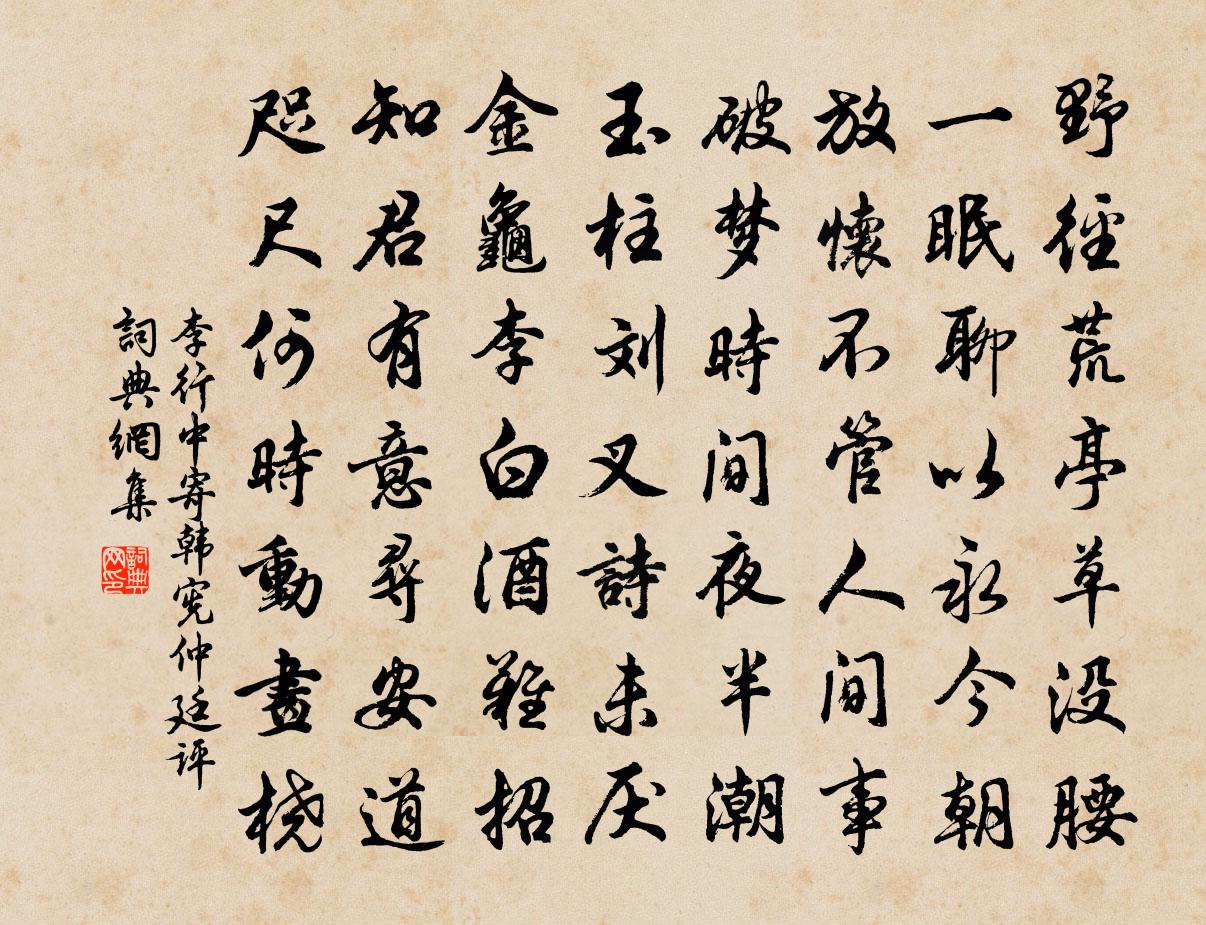 野徑荒亭草没腰
一眠聊以永今朝
放懷不管人间事
破梦時间夜半潮
玉柱刘叉詩未厌
金龜李白酒難招
知君有意尋安道
咫尺何時動畫桡
李行中寄韩宪仲廷评
詞典網集
詞典网印